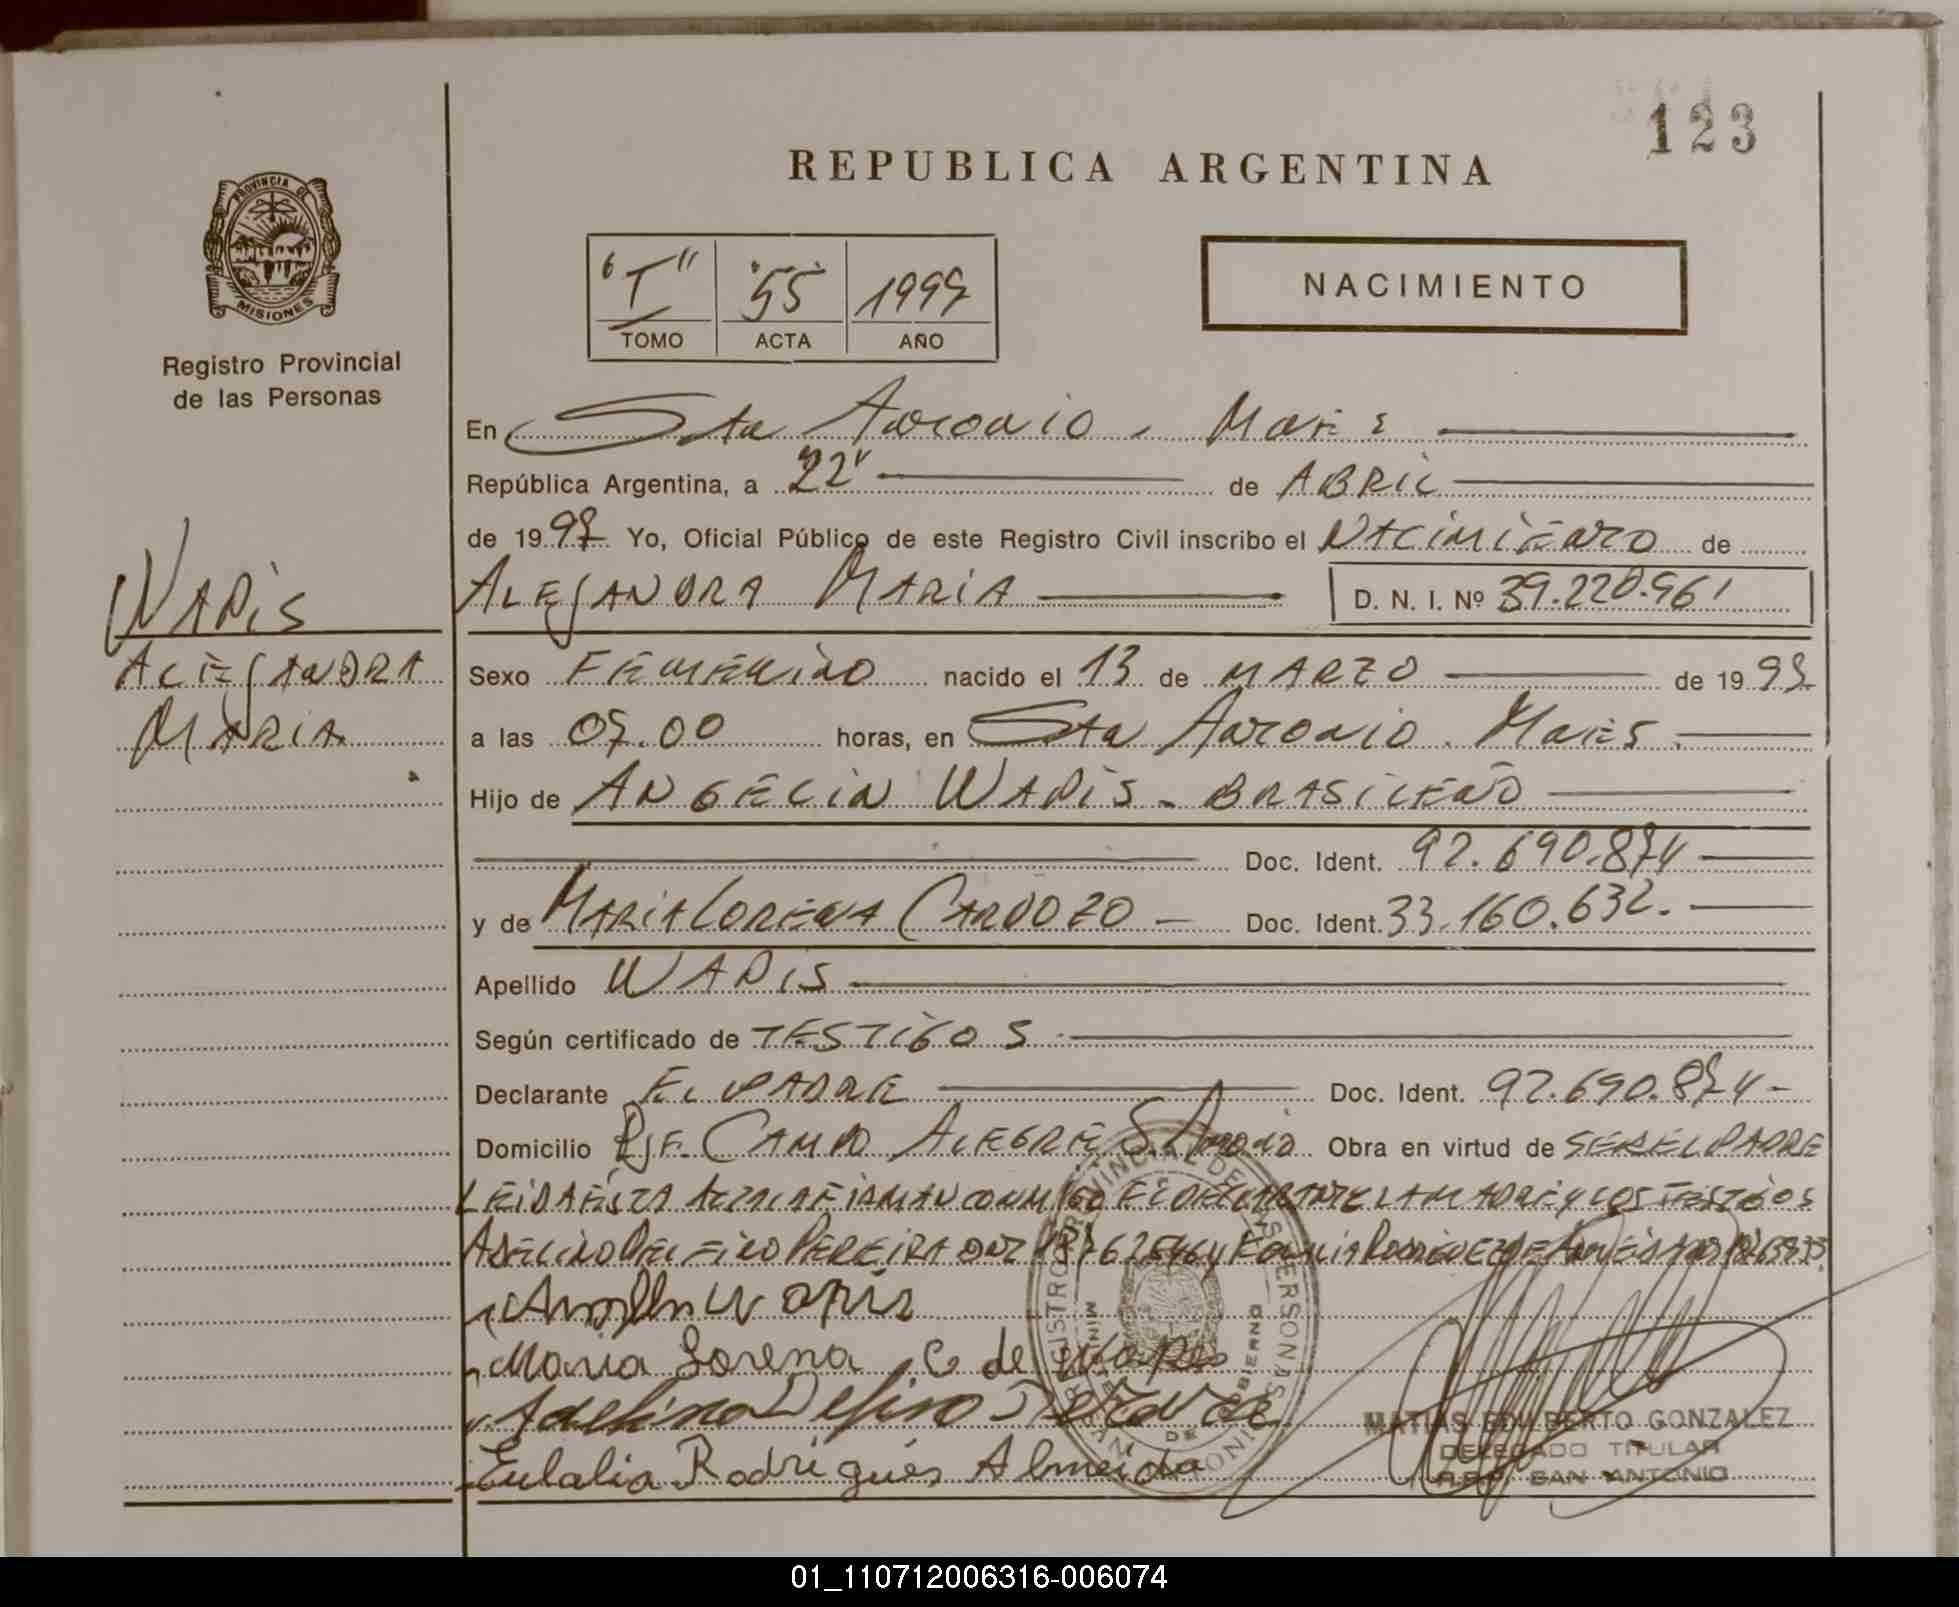 123
REPUBLICA ARGENTINA
PROVINCIA DE
MISIONES
Registro Provincial
de las Personas
"T" 55
TOMO ACTA AÑO
NACIMIENTO
En Sta Antonio
República Argentina, a 22 de ABRIL
de 19 Yo, Oficial Público de este Registro Civil inscribo el NACIMIENTO de
ALEJANDRA MARIA D. N. I. Nº 39.220.961
WAPIS
ALEJANDRA
MARIA
Sexo FEMENINO nacido el 13 de MARZO de 19
a las horas, en Sta Antonio
Hijo de ANGELIN WAPIS - BRASILEÑO
Doc. Ident. 92.690.874
y de MARIA LORENA CARDOZO - Doc. Ident. 33.160.632.
Apellido WAPIS
Según certificado de TESTIGOS
Declarante EL PADRE Doc. Ident. 92.690.874 -
Domicilio PJE. CAMPO ALEGRE S. Antonio Obra en virtud de SER EL PADRE
LEIDA ESTA ACTA LA FIRMAN CONMIGO EL DECLARANTE LA MADRE Y LOS TESTIGOS
ADELINO DELFINO PEREIRA
Maria Lorena C de
Adelino Delfino
Eulalia Rodrigues Almeida
REGISTRO PROVINCIAL DE LAS PERSONAS
MATIAS EDILBERTO GONZALEZ
DELEGADO TITULAR
R.P.P. SAN ANTONIO
01_110712006316-006074